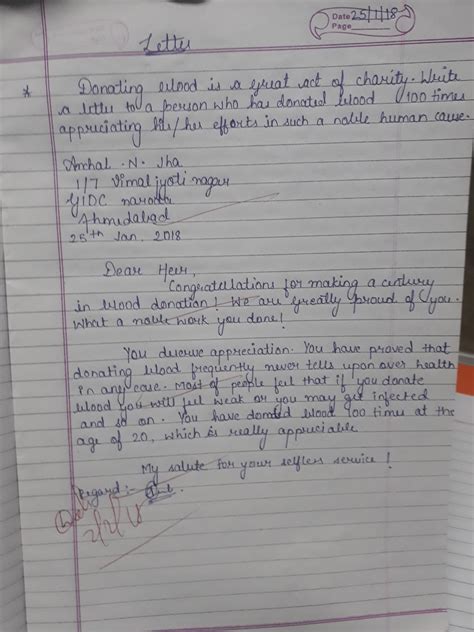 Date 25/1/18
Page
Letter
* Donating blood is a great act of charity. Write
a letter to a person who has donated blood 100 times
appriciating his/her efforts in such a noble human cause.
Anchal .N. Jha
1/7 Vimal jyoti nagar
GIDC naroda
Ahmedabad
25th Jan, 2018
Dear Heer,
Congratullations for making a century
in blood donation! We are greatly proud of you.
What a noble work you done!
You deserve appreciation. You have proved that
donating blood frequently never tells upon over health
in any case. Most of people feel that if you donate
blood you will feel weak or you may get infected
and so on. You have donated blood 100 times at the
age of 20, which is really appreciable
My salute for your selfless service!
Regard:-
2/2/18